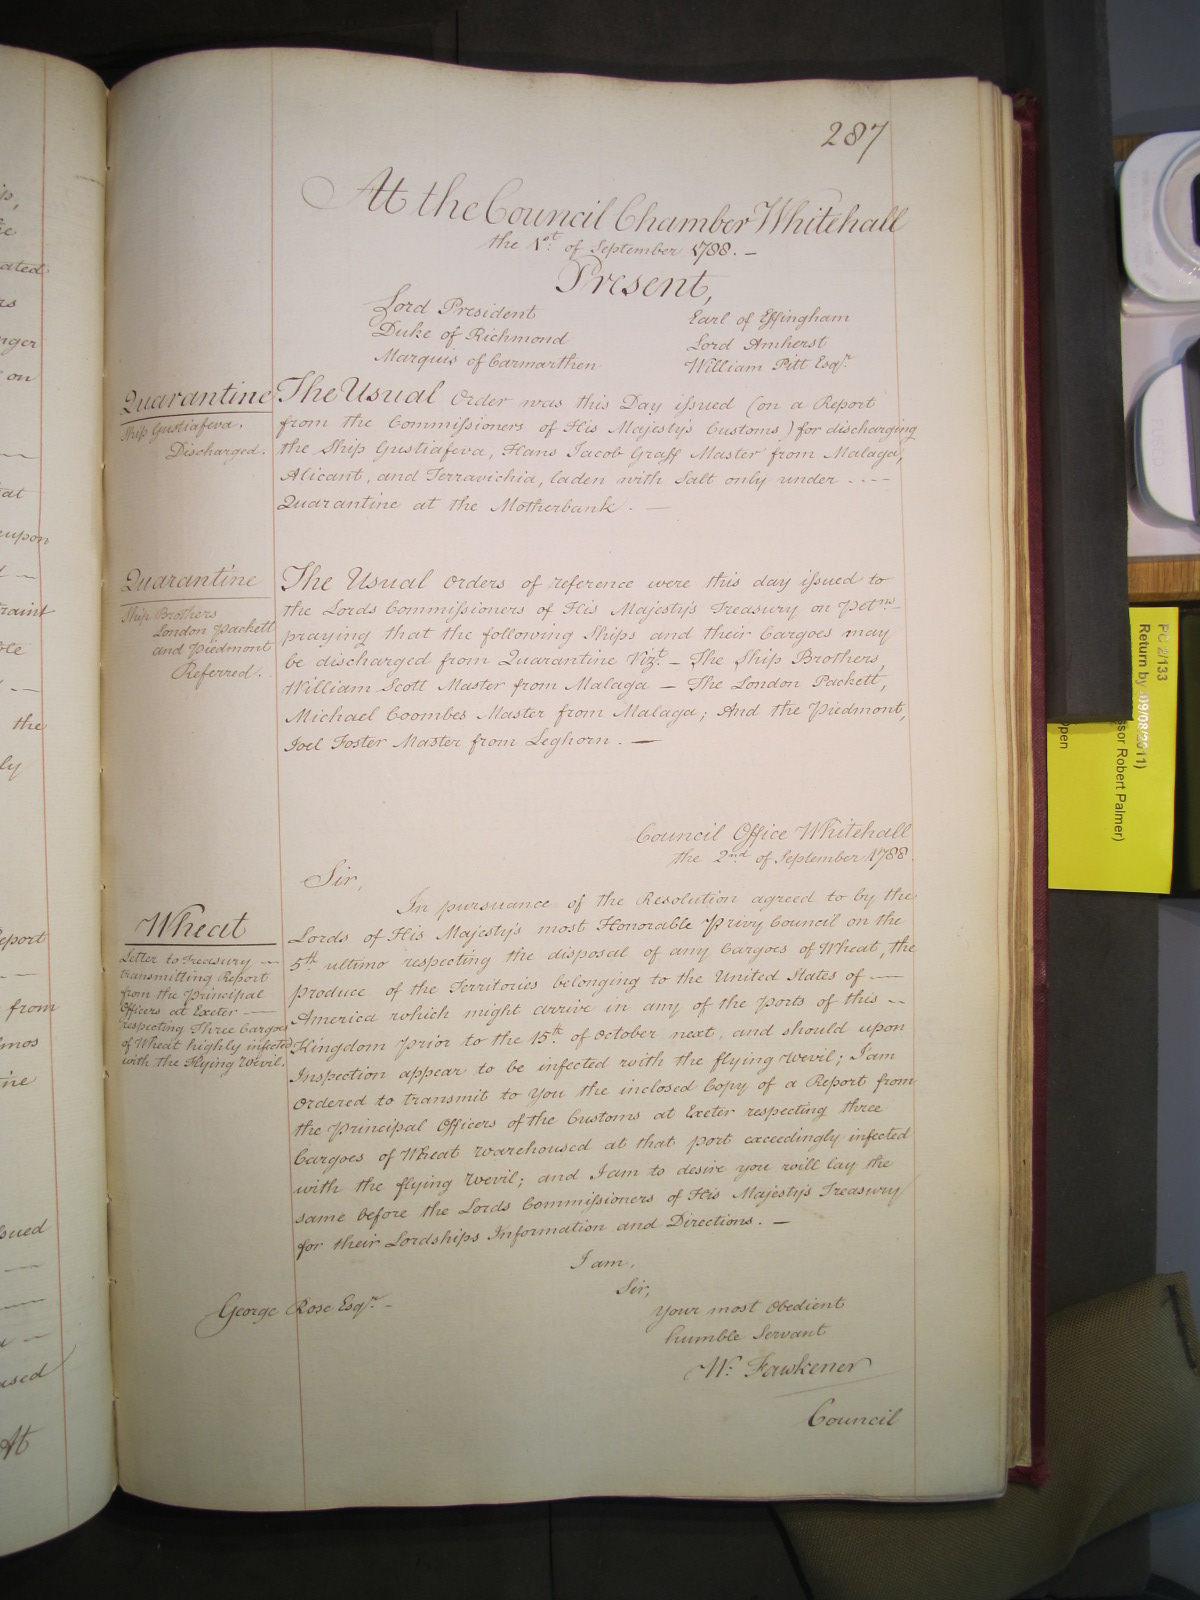 287
At the Council Chamber Whitehall
the 1st of September 1788. —
Present,
Lord President
Duke of Richmond
Marquis of Carmarthen
Earl of Effingham
Lord Amherst
William Pitt Esqr.
Quarantine
Ship Gustiafeva.
Discharged.
The Usual Order was this Day issued (on a Report
from the Commissioners of His Majesty's Customs) for discharging
the Ship Gustiafeva, Hans Jacob Graff Master from Malaga,
Alicant, and Terravichia, laden with Salt only under ----
Quarantine at the Motherbank. —
Quarantine
Ship Brothers
London Packett
and Piedmont
Referred.
The Usual Orders of reference were this day issued to
the Lords Commissioners of His Majesty's Treasury on Petns
praying that the following Ships and their Cargoes may
be discharged from Quarantine Vizt. — The Ship Brothers,
William Scott Master from Malaga — The London Packett,
Michael Coombes Master from Malaga; And the Piedmont,
Joel Foster Master from Leghorn. —
Council Office Whitehall
the 2nd of September 1788.
Sir,
Wheat
Letter to Treasury —
transmitting Report
from the Principal
Officers at Exeter —
respecting Three Cargoes
of Wheat highly infected
with the Flying Wevil.
In pursuance of the Resolution agreed to by the
Lords of His Majesty's most Honorable Privy Council on the
5th ultimo respecting the disposal of any Cargoes of Wheat, the
produce of the Territories belonging to the United States of —
America which might arrive in any of the ports of this --
Kingdom prior to the 15th of October next, and should upon
Inspection appear to be infected with the flying Wevil; I am
ordered to transmit to You the inclosed Copy of a Report from
the Principal Officers of the Customs at Exeter respecting three
Cargoes of Wheat warehoused at that port exceedingly infected
with the flying Wevil; and I am to desire you will lay the
same before the Lords Commissioners of His Majesty's Treasury
for their Lordships Information and Directions. —
I am,
Sir,
Your most Obedient
humble Servant
W. Fawkener
George Rose Esqr. -
Council
PC 2/133
Return by (09/08/2011)
ssor Robert Palmer)
Open
ated
nger
on
upon
the
ly
from
At